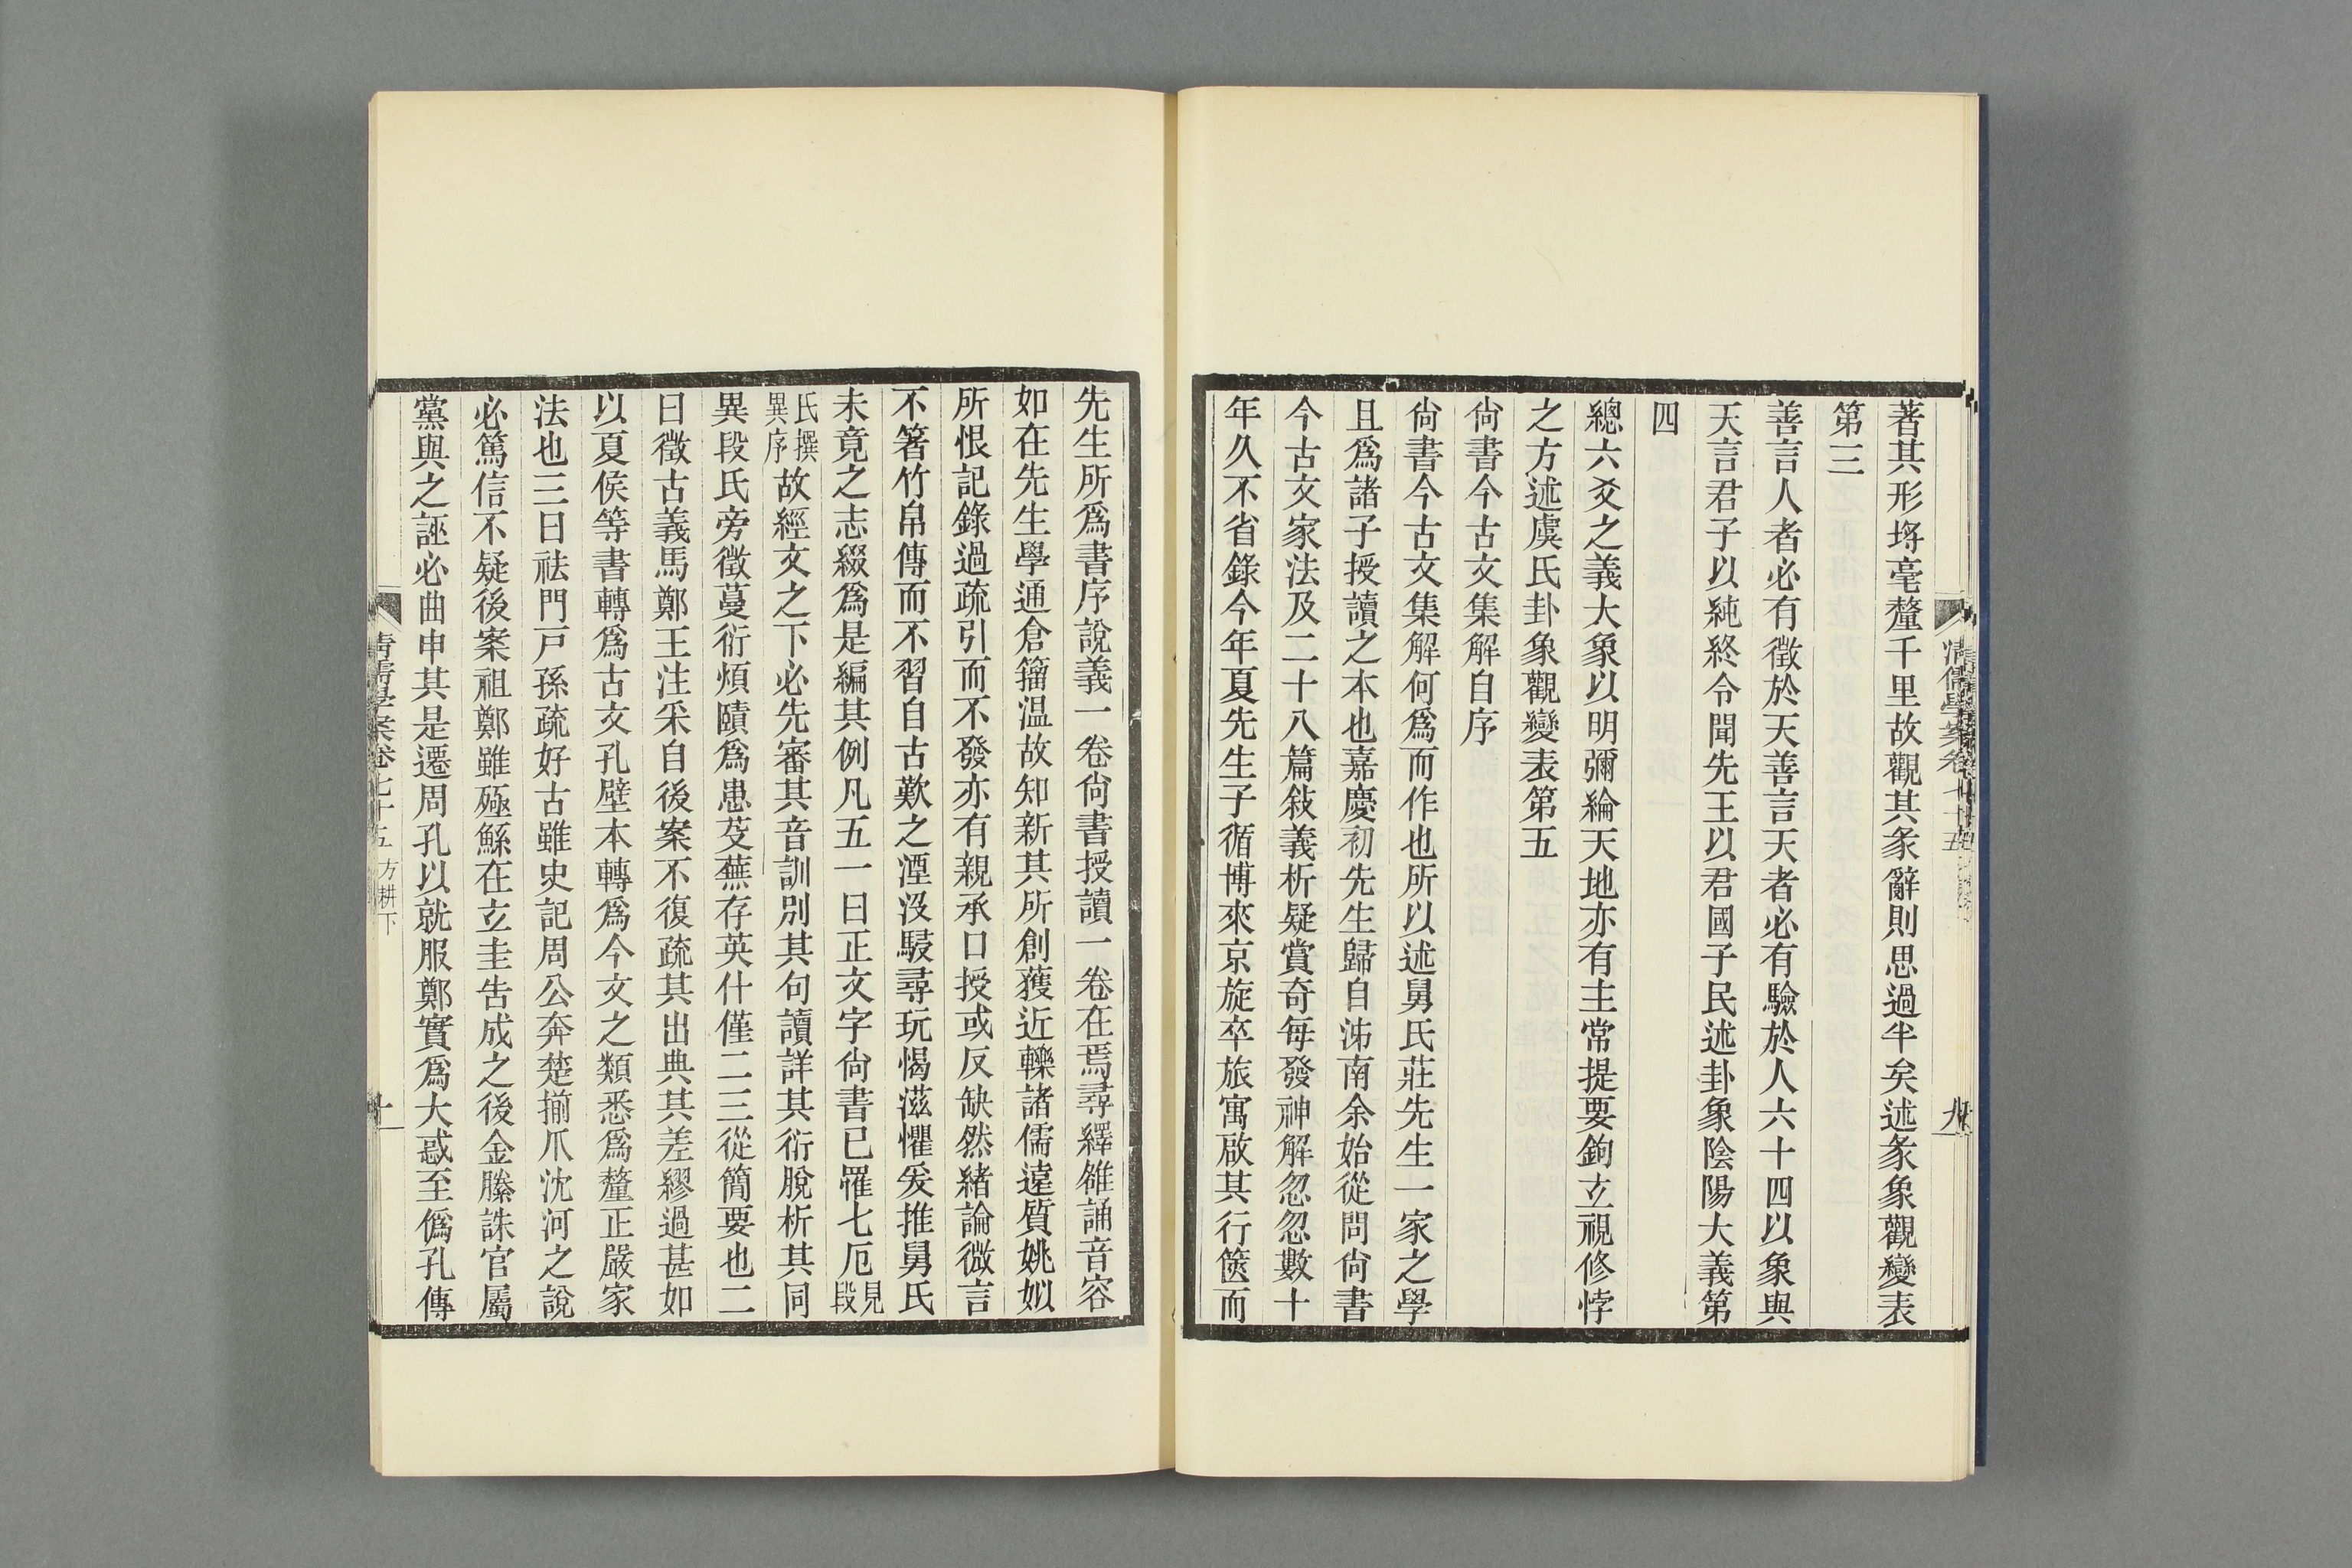 著其形埓毫釐千里故觀其彖辭則思過半矣述彖象觀變表
第三
善言人者必有徵於天善言天者必有驗於人六十四以象與
天言君子以純終令聞先王以君國子民述卦象陰陽大義第
四
總六爻之義大象以明彌綸天地亦有主常提要鉤立視修悖
之方述虞氏卦象觀變表第五
尙書今古文集解自序
尙書今古文集解何爲而作也所以述舅氏莊先生一家之學
且爲諸子授讀之本也嘉慶初先生歸自泲南余始從問尙書
今古文家法及二十八篇敍義析疑賞奇每發神解忽忽數十
年久不省錄今年夏先生子循博來京旋卒旅寓啟其行篋而
先生所爲書序說義一卷尙書授讀一卷在焉尋繹雒誦音容
如在先生學通倉籀温故知新其所創獲近轢諸儒遠質姚姒
所恨記錄過疏引而不發亦有親承口授或反缺然緒論微言
不箸竹帛傳而不習自古歎之湮沒駸尋玩愒滋懼爰推舅氏
未竟之志綴爲是編其例凡五一曰正文字尙書已罹七厄見段
氏撰異序故經文之下必先審其音訓別其句讀詳其衍脫析其同
異段氏旁徵蔓衍煩賾爲患芟蕪存英什僅二三從簡要也二
曰徵古義馬鄭王注采自後案不復疏其出典其差繆過甚如
以夏侯等書轉爲古文孔壁本轉爲今文之類悉爲釐正嚴家
法也三曰祛門戶孫疏好古雖史記周公奔楚揃爪沈河之說
必篤信不疑後案祖鄭雖殛鯀在立圭告成之後金縢誅官屬
黨與之誣必曲申其是遷周孔以就服鄭實爲大惑至僞孔傳
清儒學案卷七十五
九
清儒學案卷七十五 方耕下
十